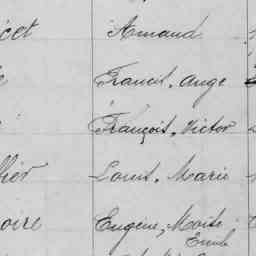 Armand
Francis. Ange
François. Victor
Louis. Marie
oire Eugène, Moïse
Emile